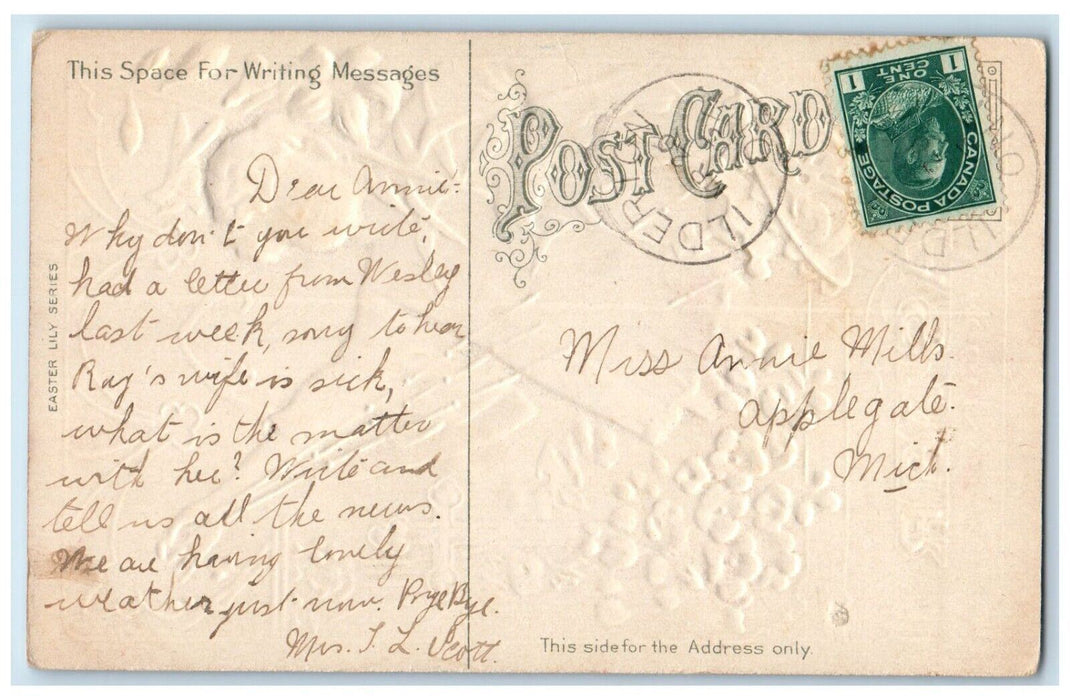 This Space For Writing Messages
Dear Annie:
Why don't you write,
had a letter from Wesley
last week, sorry to hear
Ray's wife is sick,
what is the matter
with her? Write and
tell us all the news.
We are having lovely
weather just now. Bye Bye.
Mrs. T. L. Scott.
EASTER LILY SERIES
POST CARD
ILDER
1 ONE CENT 1
CANADA POSTAGE
ILDER
Miss Annie Mills.
Applegate.
Mich.
This side for the Address only.